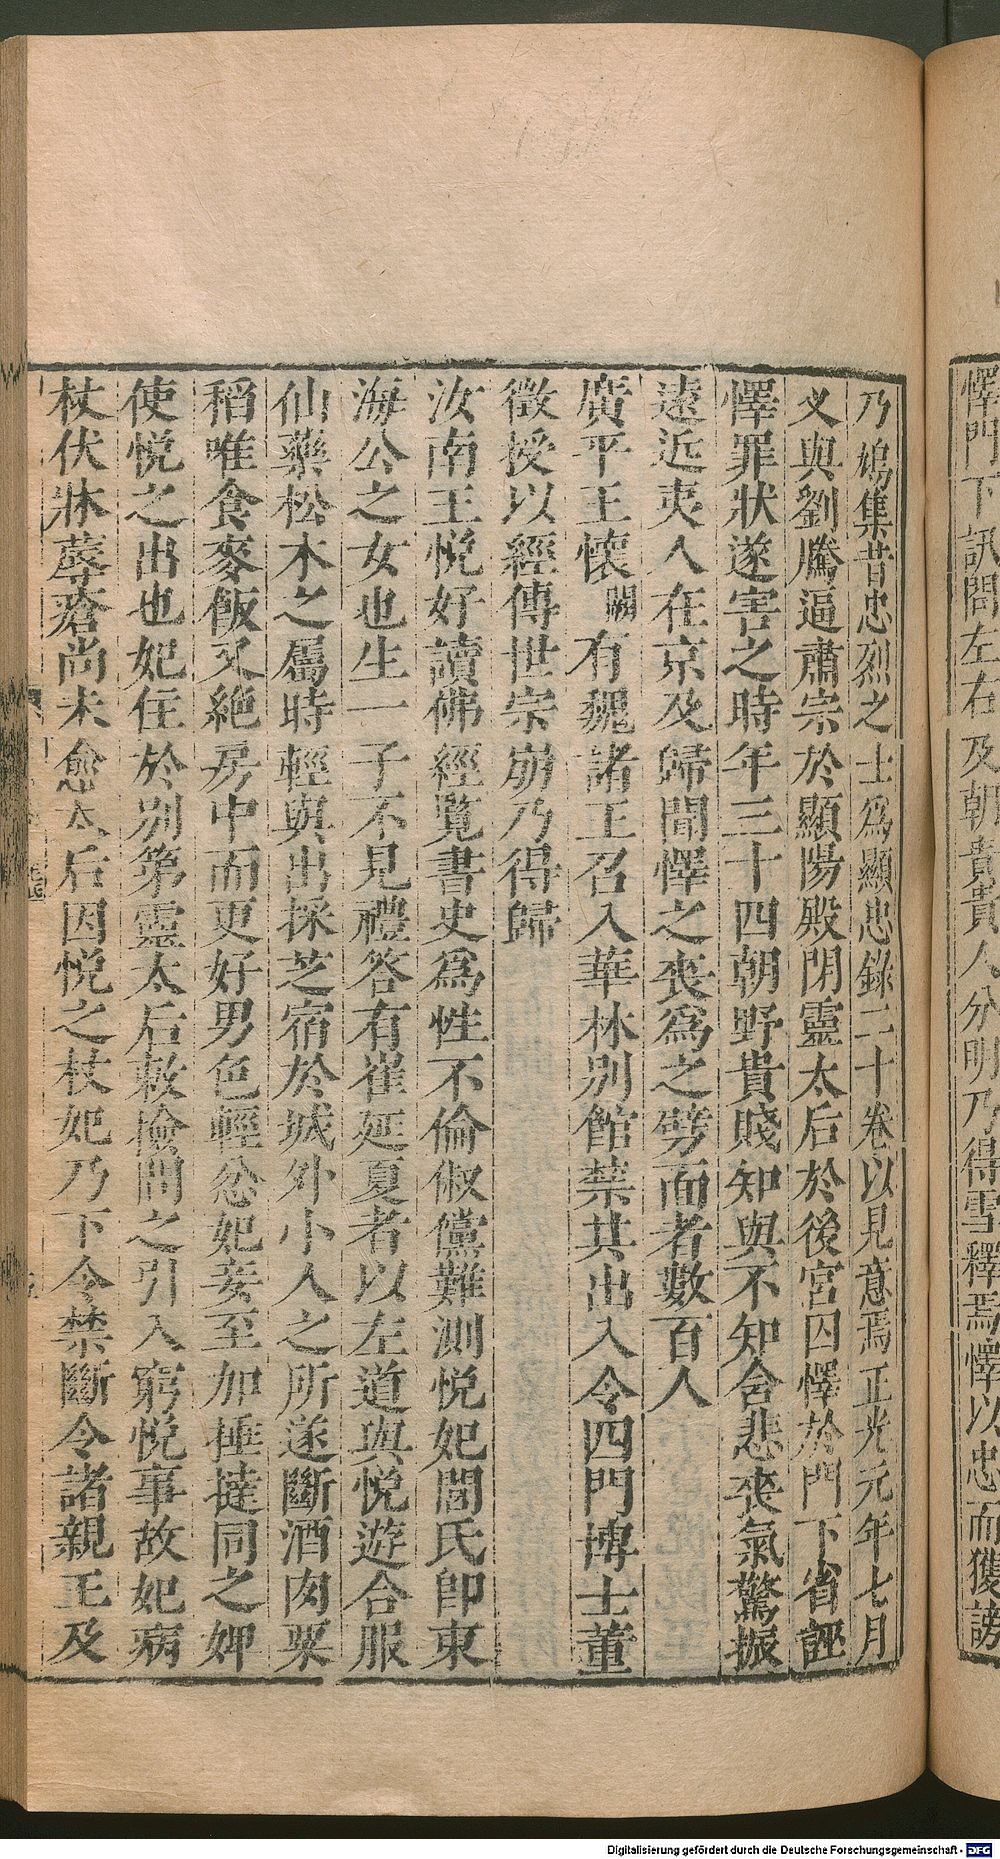 懌門下訊問左右及朝貴貴人分明乃得雪釋焉懌以忠而獲謗
乃鳩集昔忠烈之士爲顯忠錄二十卷以見意焉正光元年七月
义與劉騰逼肅宗於顯陽殿閉靈太后於後宮囚懌於門下省誣
懌罪狀遂害之時年三十四朝野貴賤知與不知含悲喪氣驚振
遠近夷人在京及歸聞懌之喪爲之劈面者數百人
廣平王懷闕有魏諸王召入華林別館禁其出入令四門博士董
徵授以經傳世宗崩乃得歸
汝南王悅好讀佛經覽書史爲性不倫俶儻難測悅妃閭氏卽東
海公之女也生一子不見禮答有崔延夏者以左道與悅遊合服
仙藥松木之屬時輕與出採芝宿於城外小人之所遂斷酒肉粟
稻唯食麥飯又絕房中而更好男色輕忿妃妾至加捶撻同之婢
使悅之出也妃住於別第靈太后敕檢問之引入窮悅事故妃病
杖伏牀蓐瘡尚未愈太后因悅之杖妃乃下令禁斷令諸親王及
Digitalisierung gefördert durch die Deutsche Forschungsgemeinschaft - DFG